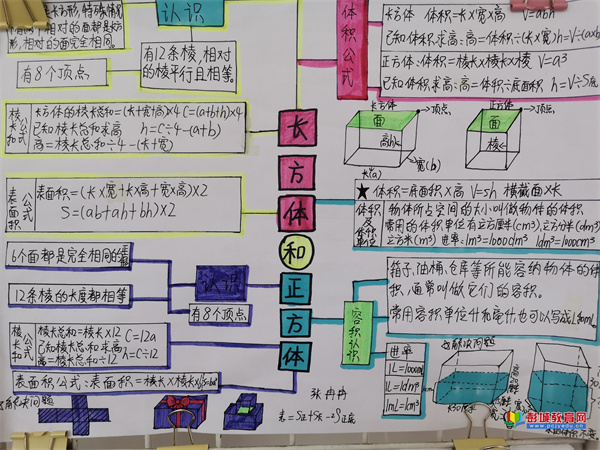 认识
是长方形，特殊情况
有两个相对的面都是方
形，相对的面完全相同。
有8个顶点
有12条棱，相对
的棱平行且相等。
棱长和公式
长方体的棱长总和=(长+宽+高)×4 C=(a+b+h)×4
已知棱长总和求高 h=C÷4-(a+b)
高=棱长总和÷4-(长+宽)
表面积公式
表面积=(长×宽+长×高+宽×高)×2
S=(ab+ah+bh)×2
6个面都是完全相同的
12条棱的长度都相等
认识
有8个顶点
棱长和公式
棱长总和=棱长×12 C=12a
已知棱长总和求高
高=棱长总和÷12 h=C÷12
表面积公式:表面积=棱长×棱长×6
解决问题
长方体和正方体
张冉冉
体积公式
长方体 体积=长×宽×高 V=abh
已知体积求高:高=体积÷(长×宽) h=V÷(ab)
正方体:体积=棱长×棱长×棱长 V=a³
已知体积求高:高=体积÷底面积 h=V÷S底
长方体
顶点
面
高(h)
宽(b)
长(a)
正方体
顶点
面
棱
★体积=底面积×高 V=Sh 横截面×长
体积及体积单位
物体所占空间的大小叫做物体的体积
常用的体积单位有立方厘米(cm³)立方分米(dm³)
立方米(m³) 进率:1m³=1000dm³ 1dm³=1000cm³
容积认识
箱子、油桶、仓库等所能容纳物体的体
积，通常叫做它们的容积。
常用容积单位升和毫升也可以写成L和mL
进率
1L=1000mL
1L=1dm³
1mL=1cm³
解决问题
彭城教育网
www.pcjyedu.cn